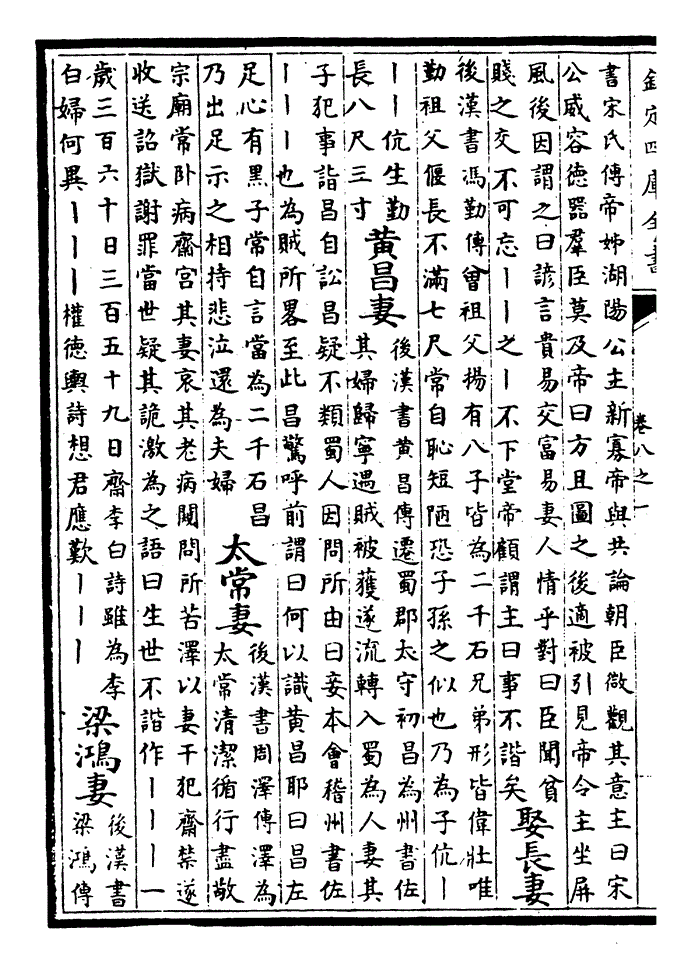 欽定四庫全書
卷八之一
書宋氏傳帝姊湖陽公主新寡帝與共論朝臣微觀其意主曰宋
公威容德器羣臣莫及帝曰方且圖之後適被引見帝令主坐屏
風後因謂之曰諺言貴易交富易妻人情乎對曰臣聞貧
賤之交不可忘丨丨之丨不下堂帝顧謂主曰事不諧矣
娶長妻
後漢書馮勤傳曾祖父揚有八子皆為二千石兄弟形皆偉壯唯
勤祖父偃長不滿七尺常自恥短陋恐子孫之似也乃為子伉丨
丨丨伉生勤
長八尺三寸
黃昌妻
後漢書黃昌傳遷蜀郡太守初昌為州書佐
其婦歸寧遇賊被獲遂流轉入蜀為人妻其
子犯事詣昌自訟昌疑不類蜀人因問所由曰妾本會稽州書佐
丨丨丨也為賊所畧至此昌驚呼前謂曰何以識黃昌耶曰昌左
足心有黑子常自言當為二千石昌
乃出足示之相持悲泣還為夫婦
太常妻
後漢書周澤傳澤為
太常清潔循行盡敬
宗廟常卧病齋宮其妻哀其老病闚問所苦澤以妻干犯齋禁遂
收送詔獄謝罪當世疑其詭激為之語曰生世不諧作丨丨丨一
歲三百六十日三百五十九日齋李白詩雖為李
白婦何異丨丨丨權德輿詩想君應歎丨丨丨
梁鴻妻
後漢書
梁鴻傳